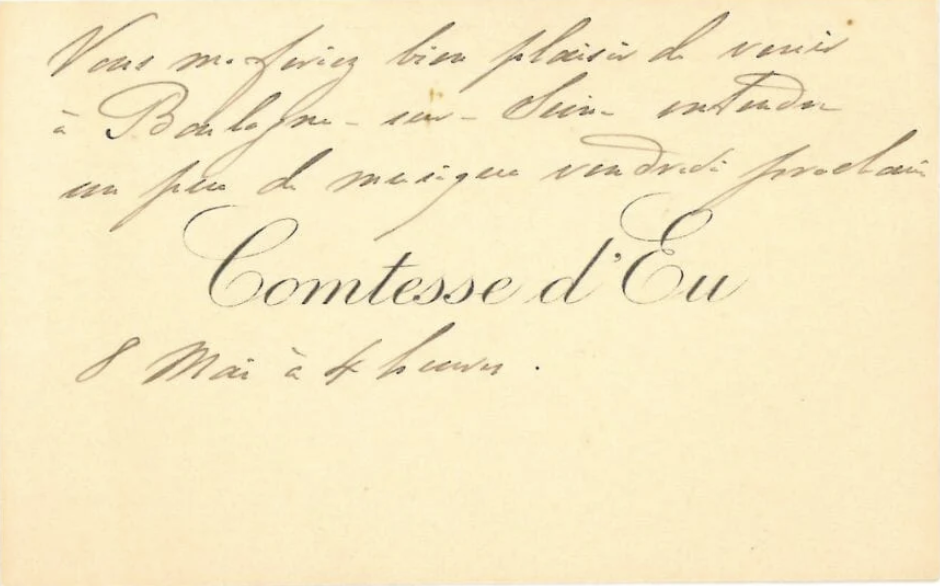 Vous me feriez bien plaisir de venir
à Boulogne-sur-Seine entendre
un peu de musique vendredi prochain
Comtesse d'Eu
8 Mai à 4 heures.